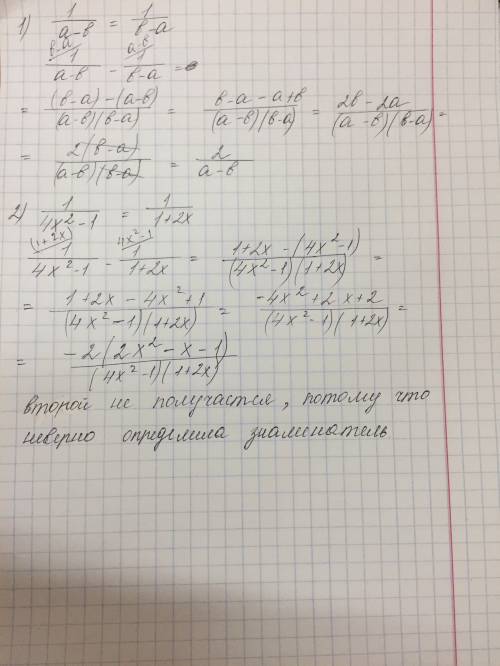 1) 1/(a-в) = 1/(в-a)
(в-a) 1/(a-в) - (a-в) 1/(в-a) =
= ((в-a)-(a-в))/((a-в)(в-a)) = (в-a-a+в)/((a-в)(в-a)) = (2в-2a)/((a-в)(в-a)) =
= 2(в-a)/((a-в)(в-a)) = 2/(a-в)
2) 1/(4x²-1) = 1/(1+2x)
(1+2x) 1/(4x²-1) - 4x²-1 1/(1+2x) = (1+2x-(4x²-1))/((4x²-1)(1+2x)) =
= (1+2x-4x²+1)/((4x²-1)(1+2x)) = (-4x²+2x+2)/((4x²-1)(1+2x)) =
= -2(2x²-x-1)/((4x²-1)(1+2x))
второй не получается, потому что
неверно определила знаменатель